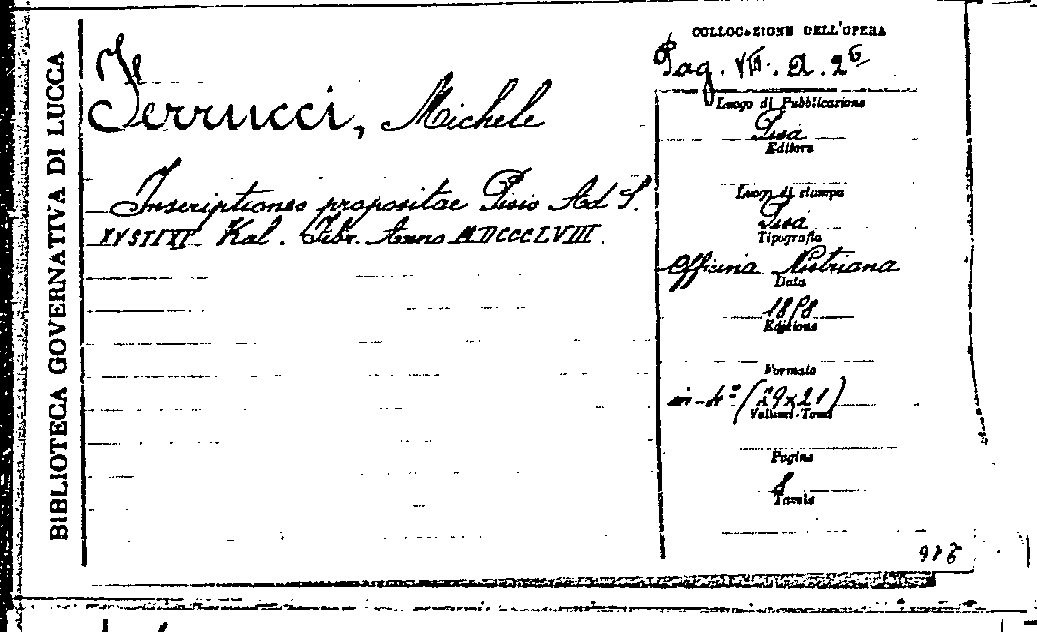 BIBLIOTECA GOVERNATIVA DI LUCCA
Fe
Ferrucci, Michele
Inscriptiones propositae Pisis Ad S.
XYSTI IV Kal. Febr. Anno MDCCCLVIII.
COLLOCAZIONE DELL'OPERA
Pag. VII. A. 26
Luogo di Pubblicazione
Pisa
Editore
Luogo di stampa
Pisa
Tipografia
Officina Nistriana
Data
1858
Edizione
Formato
in-4º (29x21)
Volumi-Tomi
Pagine
Tavole